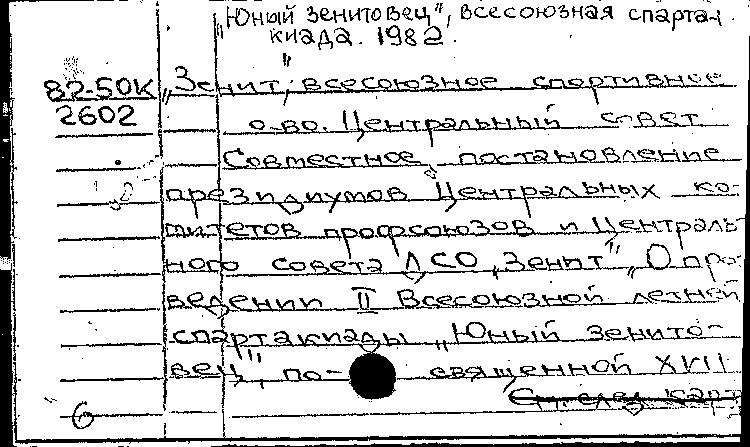 „Юный зенитовец", всесоюзная спарта-
киада. 1982.
82-50К „Зенит", всесоюзное спортивное
2602 о-во. Центральный совет
Совместное постановление
президиумов Центральных ко-
митетов профсоюзов и Централь-
ного совета ЛСО „Зенит" „О про-
ведении II Всесоюзной летней
спартакиады „Юный зенито-
вец", по- священной XVII
См. след. карт
6